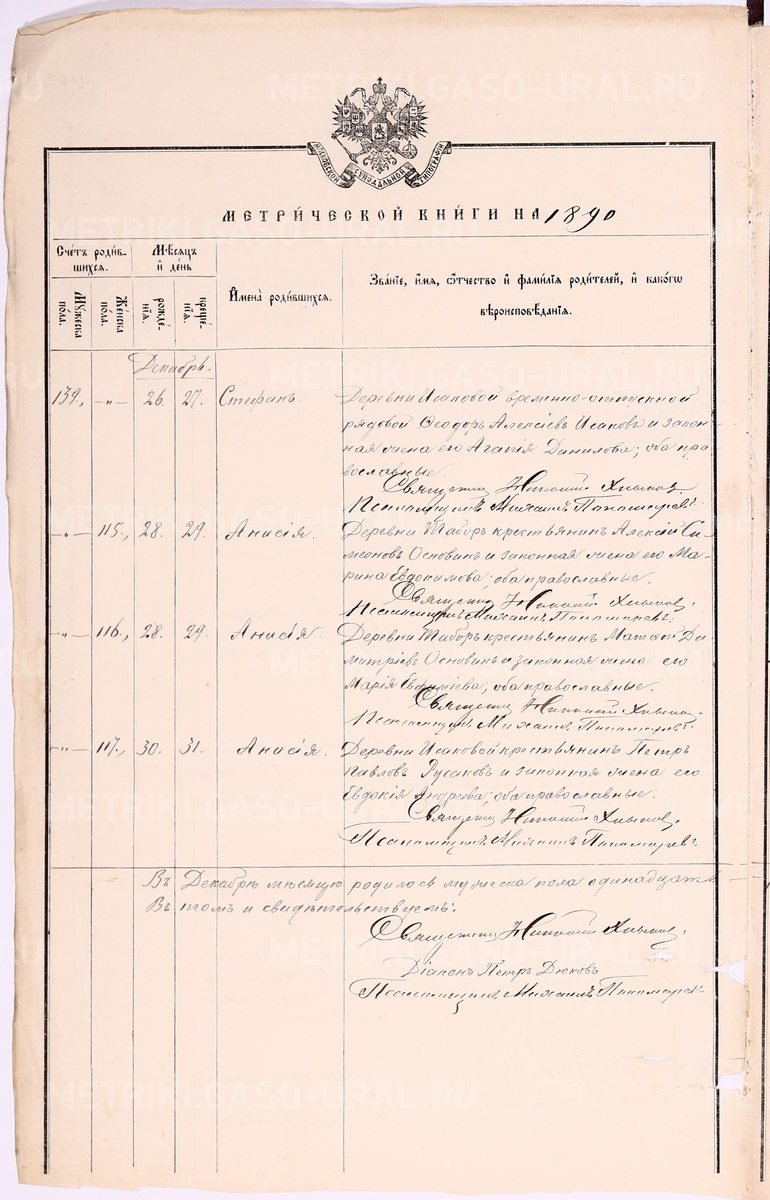 METRIKI.GASO-URAL.RU
МОСКОВСКОЙ СѴНОДАЛЬНОЙ ТИПОГРАФІИ
МЕТРИ́ЧЕСКОЙ КНИ́ГИ НА 1890
Сче́тъ роди́в-
шихся.
Мѣ́сяцъ
и҆ день
И҆мена̀ роди́вшихся.
Зва́нїе, и҆́мя, ѻ҆́тчество и҆ фами́лїя роди́телей, и҆ како́гѡ
вѣроисповѣ́данїя.
Мꙋ́жеска
пола.
Же́нска
пола.
рожде́-
нїя.
креще́-
нїя.
Декабрь.
139., -„- 26. 27. Стефанъ. Деревни Исаковой временно-отпускной
рядовой Ѳеодоръ Алексіевъ Исаковъ и закон-
ная жена его Агапія Данилова; оба пра-
вославные.
Священникъ
Псаломщикъ Михаилъ Пономаревъ.
-„- 115., 28. 29. Анисія. Деревни Таборъ крестьянинъ Алексій Си-
меоновъ Основинъ и законная жена его Ма-
рина Евдокимова; оба православные.
Священникъ
Псаломщикъ Михаилъ Пономаревъ.
-„- 116., 28. 29. Анисія. Деревни Таборъ крестьянинъ Матѳей Ди-
митріевъ Основинъ и законная жена его
Марія Евфиміева; оба православные.
Священникъ
Псаломщикъ Михаилъ Пономаревъ.
-„- 117., 30. 31. Анисія. Деревни Исаковой крестьянинъ Петръ
Павловъ Русаковъ и законная жена его
Евдокія Андреева; оба православные.
Священникъ
Псаломщикъ Михаилъ Пономаревъ.
Въ Декабрѣ мѣсяцѣ родилось мужеска пола одинадцать
Въ томъ и свидѣтельствуемъ:
Священникъ
Діаконъ Петръ Дюковъ
Псаломщикъ Михаилъ Пономаревъ